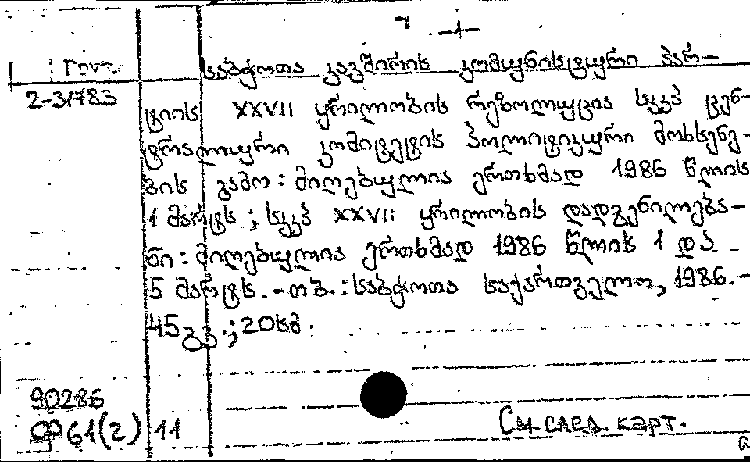 -1-
საბჭოთა კავშირის კომუნისტური პარ-
2-31783
ტიის XXVII ყრილობის რეზოლუცია სკკპ ცენ-
ტრალური კომიტეტის პოლიტიკური მოხსენე-
ბის გამო : მიღებულია ერთხმად 1986 წლის
1 მარტს ; სკკპ XXVII ყრილობის დადგენილება-
ნი : მიღებულია ერთხმად 1986 წლის 1 და
5 მარტს. - თბ. : საბჭოთა საქართველო, 1986. -
45გვ. ; 20სმ.
90286
61(2) 11
См. след. карт.